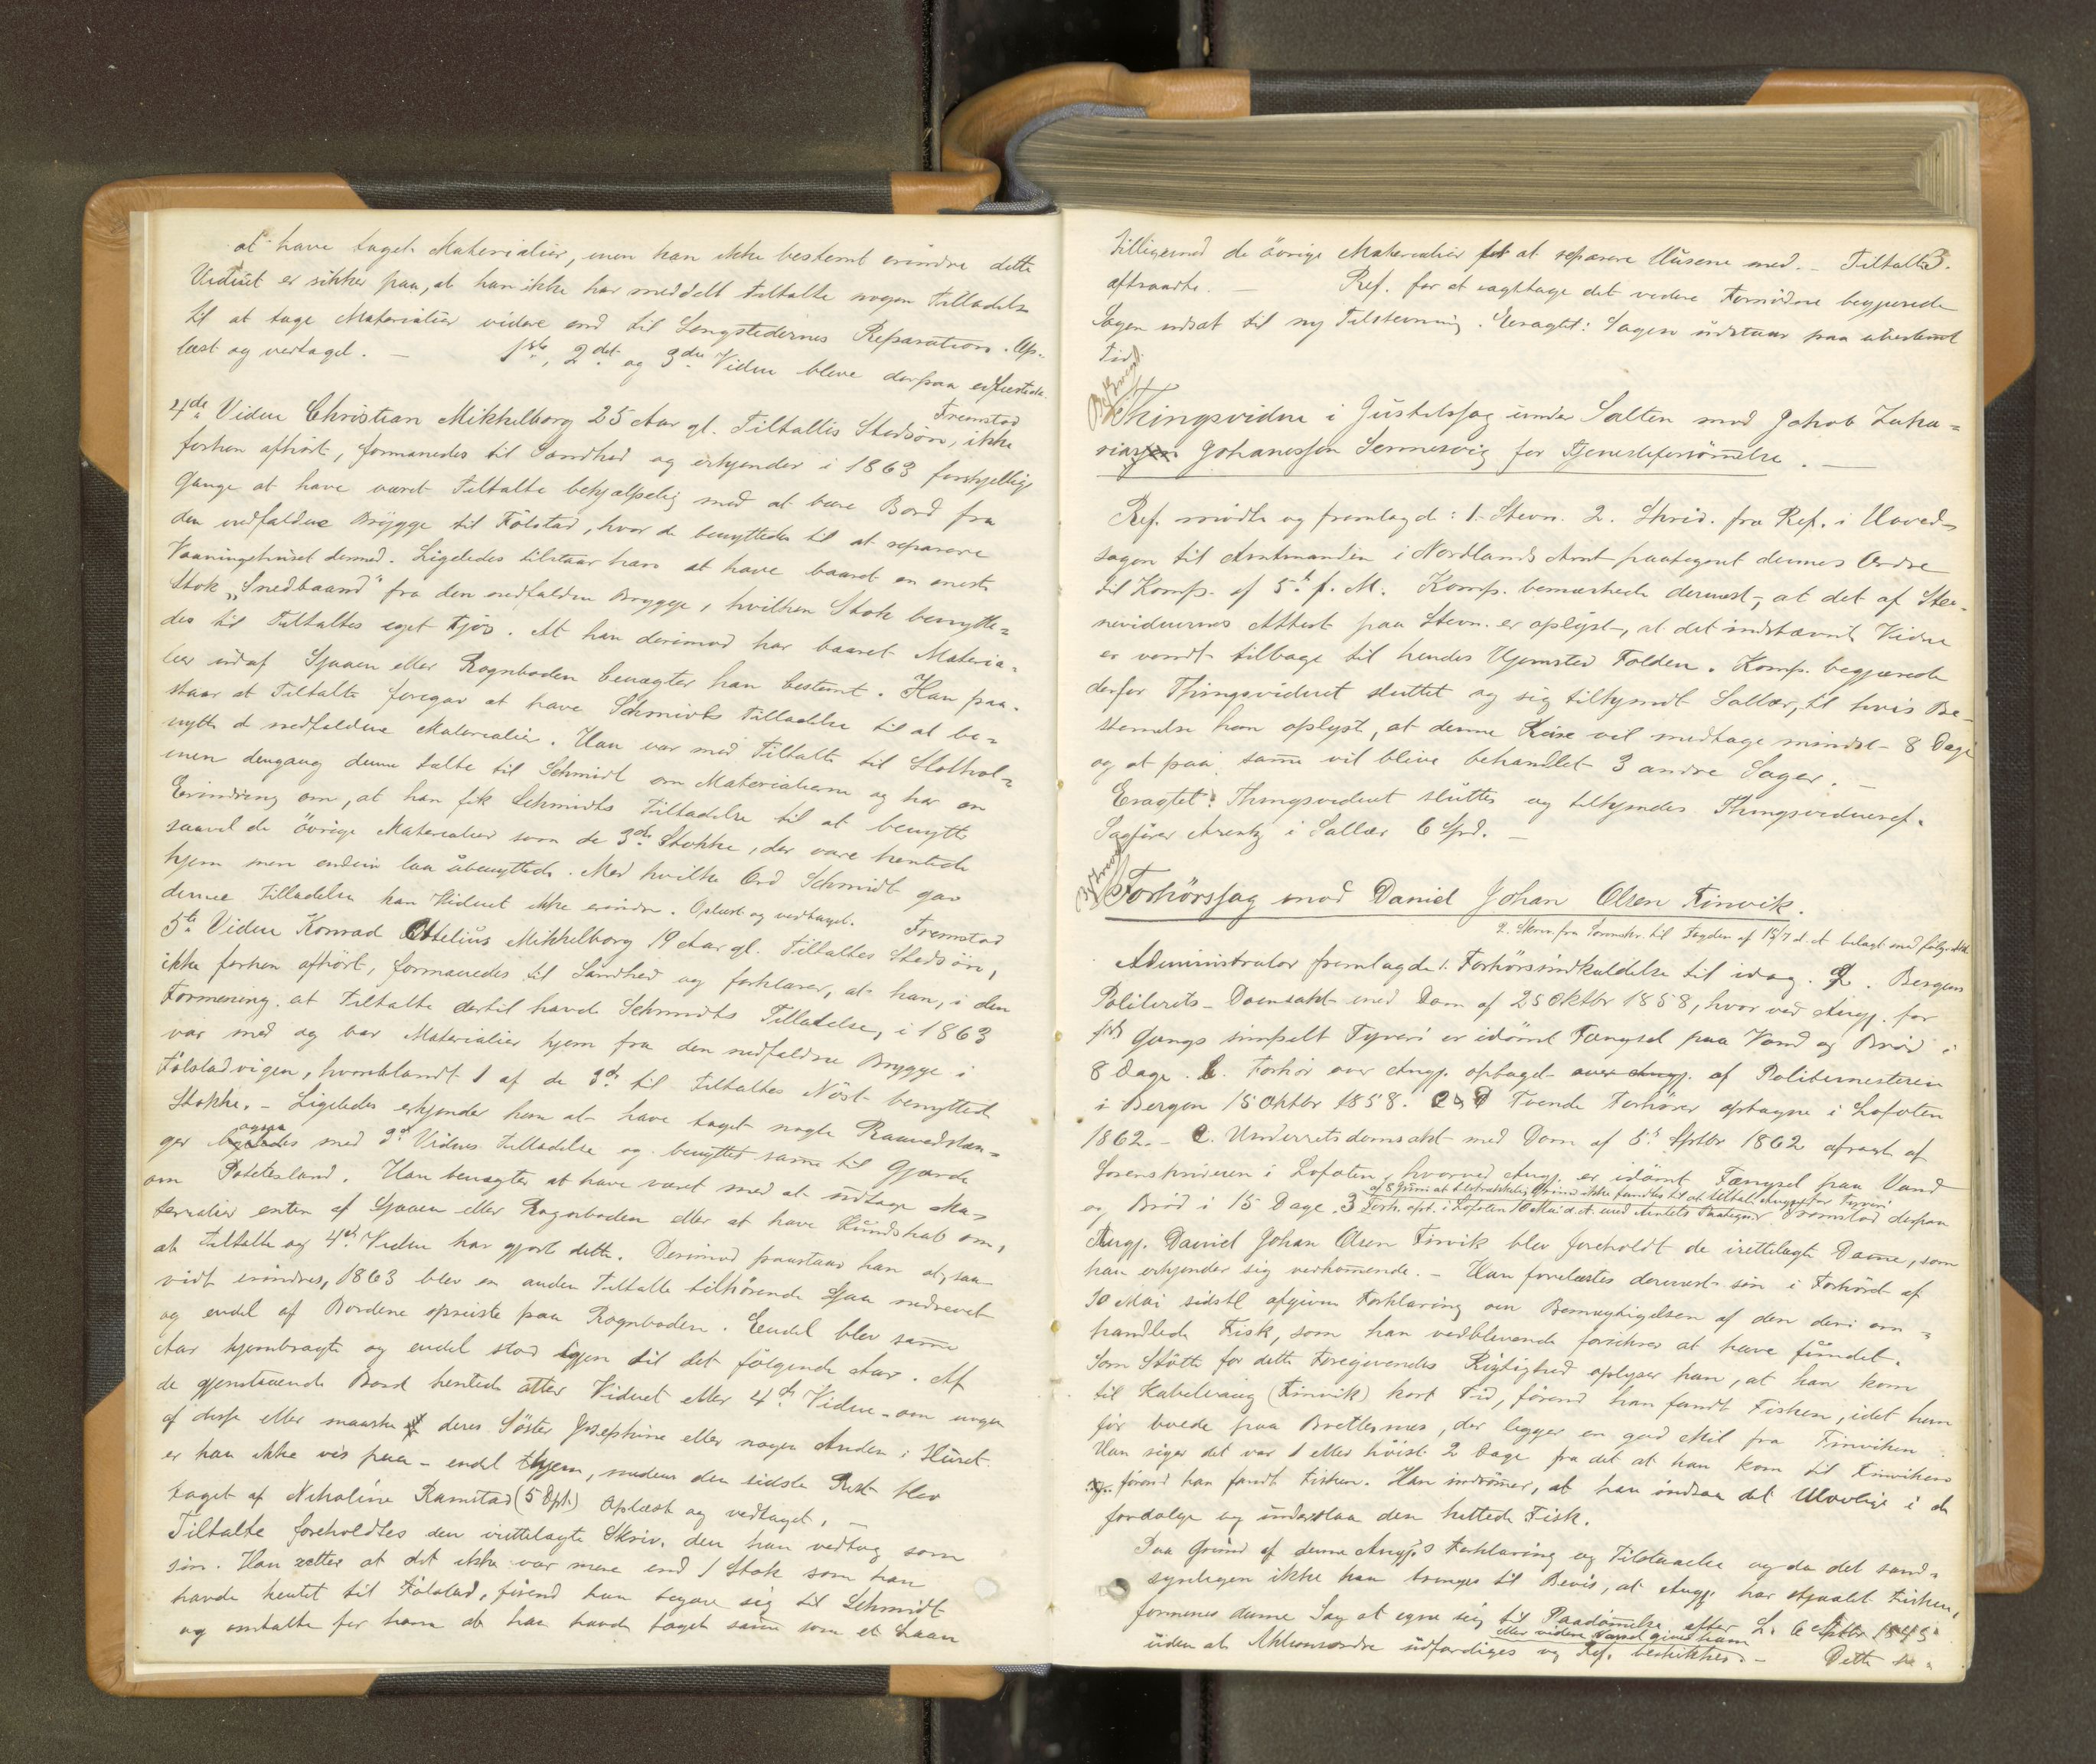 at have taget Materialier, men kan ikke bestemt erindre dette
Vidnet er sikker paa, at han ikke har meddelt Tiltalte nogen Tilladelse
til at tage Materialier videre end til Lengstedernes Reparation. Op-
læst og vedtaget. — 1ste, 2det og 3die Vidne bleve derpaa edfæstede.
Fremstod
4de Vidne Christian Mikkelborg 25 Aar gl. Tiltaltes Stedsøn, ikke
forhen afhørt, formanedes til Sandhed og erkjender i 1863 forskjellige
Gange at have været Tiltalte behjælpelig med at bære Bord fra
den nedfaldne Brygge til Fölstad, hvor de benyttedes til at reparere
Vaaningshuset dermed. Ligeledes tilstaar han at have baaret en eneste
Stok „Snedbaand" fra den nedfaldne Brygge, hvilken Stok benytte=
des til Tiltaltes eget Fjös. At han derimod har baaret Materia-
lier ud af Sjaaen eller Rognboden benægter han bestemt. Han paa-
staar at Tiltalte foregav at have Schmidts Tilladelse til at be=
nytte de nedfaldne Materialier. Han var med Tiltalte til Slothol=
men dengang denne talte til Schmidt om Materialierne og har en
Erindring om, at han fik Schmidts Tilladelse til at benytte
saavel de övrige Materialier som de 3de Stokke, der vare hentede
hjem men endnu laa ubenyttede. Med hvilke Ord Schmidt gav
denne Tilladelse kan Vidnet ikke erindre. Oplæst og vedtaget. Fremstod
5te Vidne Konrad Ottelius Mikkelborg 19 Aar gl. Tiltaltes Stedsön,
ikke forhen afhört, formanedes til Sandhed og forklarer, at han, i den
Formening at Tiltalte dertil havde Schmidts Tilladelse, i 1863
var med og bar Materialier hjem fra den nedfaldne Brygge i
Fölstadvigen, hvoriblandt 1 af de 3de til Tiltaltes Nöst benyttede
Stokke. – Ligeledes erkjender han at have taget nogle Raavedstæn=
ger med 3de Vidnes Tilladelse og benyttet samme til Gjærde
om Potetesland. Han benægter at have været med at udtage Ma-
terialier enten af Sjaaen eller Rognboden eller at have Kundskab om,
at Tiltalte og 4de Vidne har gjort dette. Derimod paastaar han at, saa
vidt erindres, 1863 blev en anden Tiltalte tilhörende Sjaa nedrevet
og endel af Bordene opreiste paa Rognboden. Endel blev samme
Aar hjembragte og endel stod igjen til det fölgende Aar. Af
de gjenstaaende Bord hentede atter Vidnet eller 4de Vidne – om nogen
af disse eller maaske deres Söster Josephine eller nogen Anden i Huset
er han ikke vis paa – endel hjem, medens den sidste Rest blev
taget af Nikoline Ramstad (5 Spt.) Oplæst og vedtaget. —
Tiltalte foreholdtes den irettelagte Skriv. den han vedtog som
sin. Han retter at det ikke var mere end 1 Stok som han
havde hentet til Fölstad, förend han begav sig til Schmidt
og omtalte for ham at han havde taget samme som et Laan
3.
tilligemed de övrige Materialier for at reparere Husene med. – Tiltalte
aftraadte. — Ref. for at iagttage det videre Fornödne begjærede
Sagen udsat til ny Tilstevning. Eragtet: Sagen udstaar paa ubestemt
Tid.
Thingsvidne i Justitssag under Salten mod Jakob Zaka=
rias Johanessen Sennesvig for Tjenesteforsömmelse. —
Ref. mödte og fremlagde: 1. Stevn. 2. Skriv. fra Ref. i Hoved-
sagen til Amtmanden i Nordlands Amt paategnet dennes Ordre
til Komp. af 5te f. M. Komp. bemærkede dernæst, at det af Stev-
nevidnernes Attest paa Stevn. er oplyst, at det indstævnte Vidne
er vendt tilbage til hendes Hjemsted Folden. Komp. begjærede
derfor Thingsvidnet sluttet og sig tilkjendt Sallær, til hvis Be-
stemmelse han oplyst, at denne Reise vil medtage mindst 8 Dage
og at paa samme vil blive behandlet 3 andre Sager. —
Eragtet: Thingsvidnet sluttes og tilkjendes Thingsvidneref.
Sagförer Arentz i Sallær 6 Spd. —
Forhörssag mod Daniel Johan Olsen Finvik.
2. Skriv. fra Sorenskr. til Fogden af 15/7 d. A. belagt med fölgende
Administrator fremlagde 1. Forhörsindkaldelse til idag. 2. Bergens
Politirets-Domsakt med Dom af 25 Oktbr 1858, hvor ved Angj. for
1ste Gangs simpelt Tyveri er idömt Fængsel paa Vand og Bröd i
8 Dage. b. Forhör over Angj. optaget over Angj. af Politimesteren
i Bergen 15 Oktbr 1858. c & d Tvende Forhörer optagne i Lofoten
1862. – e. Underretsdomsakt med Dom af 5te Septbr 1862 afsagt af
Sorenskriveren i Lofoten, hvorved Angj. er idömt Fængsel paa Vand
af 8 Juni at tilstrækkelig Grund ikke fandtes til at tiltale Angj. for Tyveri
og Bröd i 15 Dage. 3 Forh. opt. i Lofoten 10 Mai d. A. med Amtets Paategn. Fremstod derpaa
Angj. Daniel Johan Olsen Finvik blev foreholdt de irettelagte Domme, som
han erkjender sig vedkommende. – Han forelæstes dernæst sin i Forhöret af
10 Mai sidstl. afgivne Forklaring om Bemægtigelsen af den deri om=
handlede Fisk, som han vedblivende forsikrer at have fundet.
Som Stötte for dette Foregivendes Rigtighed oplyser han, at han kom
til Kabelvaag (Finvik) kort Tid, förend han fandt Fisken, idet han
för boede paa Brettesnes, der ligger en god Mil fra Finviken
Han siger det var 1 eller höist 2 Dage fra det at han kom til Finviken
förend han fandt Fisken. Han indrömmer, at han indsaa det Ulovlige i at
fordölge og underslaa den hittede Fisk.
Paa Grund af denne Angj.s Forklaring og Tilstaaelse og da det sand=
synligen ikke kan bringes til Bevis, at Angj. har stjaalet Fisken,
formenes denne Sag at egne sig til Paadömmelse efter L. 6 Septbr 1845
eller videre Varsel gives ham
uden at Aktionsordre udfærdiges og Ref. beskikkes. – Dette